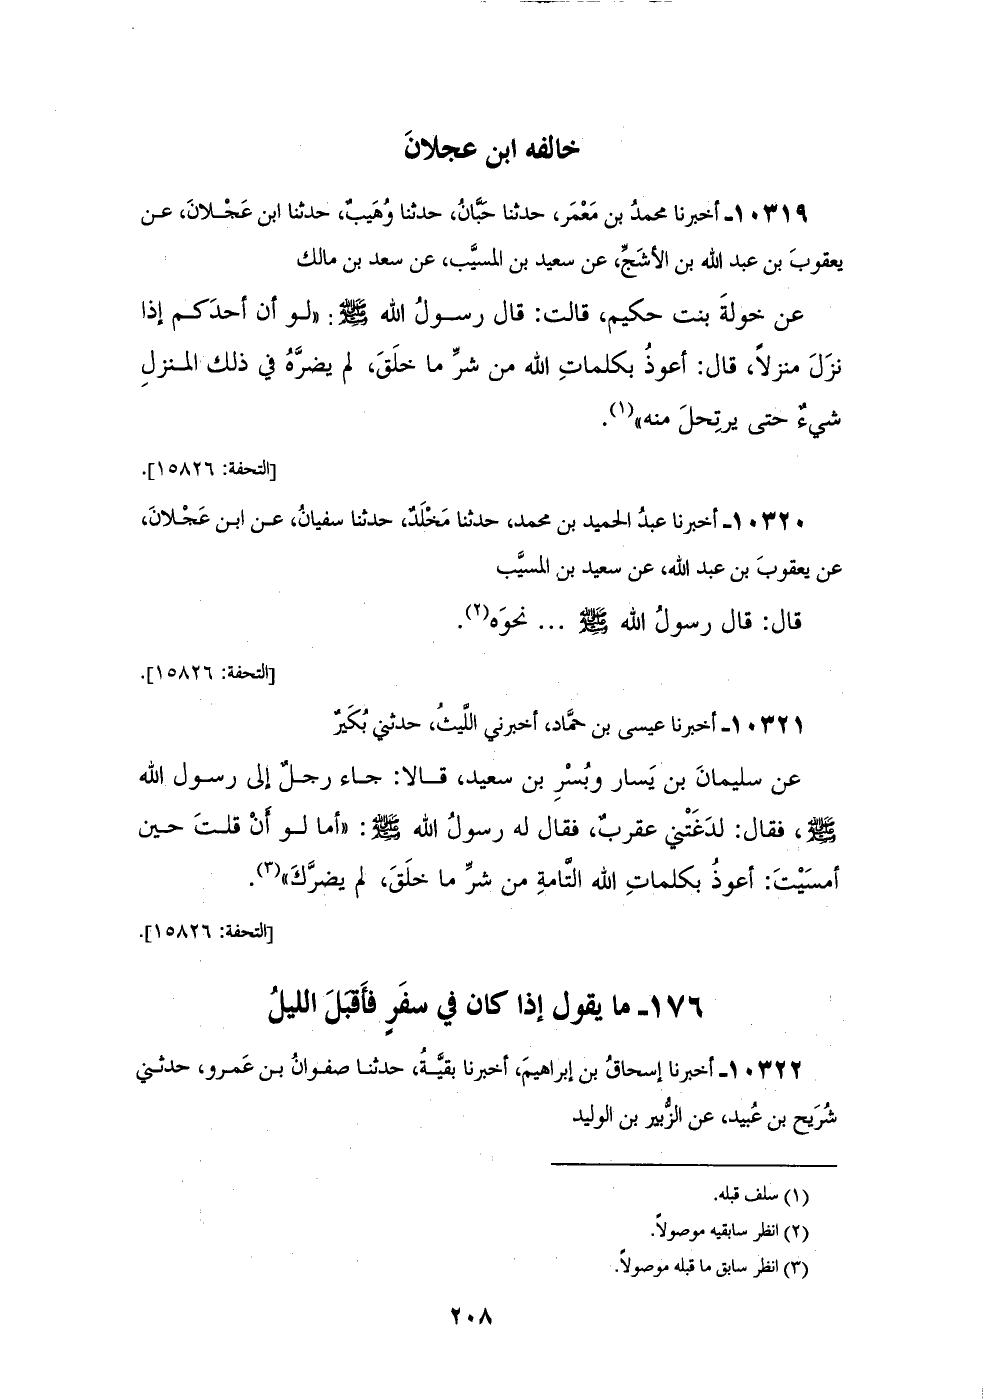 خالفه ابن عجلانَ
١٠٣١٩ـ أخبرنا محمدُ بن مَعْمَر، حدثنا حَبَّانُ، حدثنا وُهَيبٌ، حدثنا ابن عَجْـلانَ، عـن
يعقوبَ بن عبد الله بن الأشَجِّ، عن سعيد بن المسيَّب، عن سعد بن مالك
عن خولةَ بنت حكيم، قالت: قال رسـولُ الله ﷺ: «لـو أن أحدَكـم إذا
نزَلَ منزلاً، قال: أعوذُ بكلماتِ الله من شرِّ ما خلَقَ، لم يضرَّهُ في ذلك المـنزلِ
شيءٌ حتى يرتِحلَ منه»(١).
[التحفة: ١٥٨٢٦].
١٠٣٢٠ـ أخبرنا عبدُ الحميد بن محمد، حدثنا مَخْلَدٌ، حدثنا سفيانُ، عـن ابـن عَجْـلانَ،
عن يعقوبَ بن عبد الله، عن سعيد بن المسيَّب
قال: قال رسولُ الله ﷺ ... نحوَه(٢).
[التحفة: ١٥٨٢٦].
١٠٣٢١ـ أخبرنا عيسى بن حمَّاد، أخبرني اللَّيثُ، حدثني بُكَيرٌ
عن سليمانَ بن يَسار وبُسْرِ بن سعيد، قـالا: جـاء رجـلٌ إلى رسـول الله
ﷺ، فقال: لدَغَتْني عقربٌ، فقال له رسولُ الله ﷺ: «أما لـو أَنْ قلـتَ حـين
أمسَيْتَ: أعوذُ بكلماتِ الله التَّامةِ من شرِّ ما خلَقَ، لم يضرَّكَ»(٣).
[التحفة: ١٥٨٢٦].
١٧٦ـ ما يقول إذا كان في سفَرٍ فأَقبَلَ الليلُ
١٠٣٢٢ـ أخبرنا إسحاقُ بن إبراهيمَ، أخبرنا بقيَّـةُ، حدثنـا صفـوانُ بـن عَمـرو، حدثـني
شُرَيح بن عُبيد، عن الزُّبير بن الوليد
(١) سلف قبله.
(٢) انظر سابقيه موصولاً.
(٣) انظر سابق ما قبله موصولاً.
٢٠٨